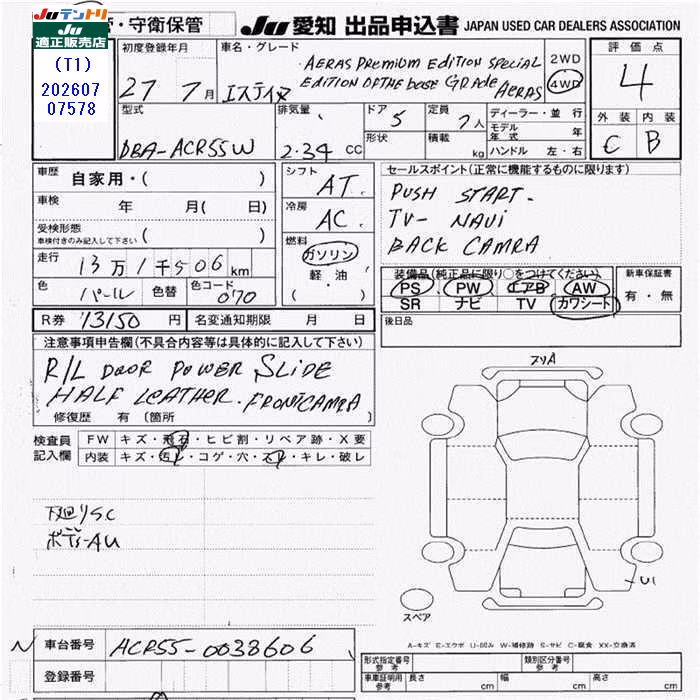 Juテントリ
Ju
適正販売店
・守衛保管
Ju 愛知 出品申込書 JAPAN USED CAR DEALERS ASSOCIATION
(T1)
202607
07578
初度登録年月
27 7月
車名・グレード
エスティマ
AERAS PREMIUM EDITION SPECIAL
EDITION OF THE base GRADE AERAS
2WD
4WD
評価点
4
外装 内装
C B
型式
DBA-ACR55W
排気量
2.34 CC
ドア
5
形状
定員
7人
積載
kg
ディーラー・並行
モデル年式 年
ハンドル 左・右
車歴
自家用・( )
車検
年 月( 日)
受検形態
車検付きのみ記入して下さい ( )
走行
13万1千506km
色
パール
色替
色コード
070
シフト
AT
冷房
AC
燃料
ガソリン
軽・油
( )
セールスポイント(正常に機能するものに限ります)
PUSH START.
TV- NAVI
BACK CAMRA
装備品(純正品に限り○をつけてください)
PS PW エアB AW
SR ナビ TV カワシート
新車保証書
有・無
後日品
R券 13150 円 名変通知期限 月 日
注意事項申告欄(不具合内容等は具体的に記入して下さい)
R/L DOOR POWER SLIDE
HALF LEATHER. FRONTCAMRA
修復歴 有 〔箇所 〕
検査員
記入欄
FW キズ・飛石・ヒビ割・リペア跡・X要
内装 キズ・汚レ・コゲ・穴・スレ・キレ・破レ
下廻りSC
ボデーAU
スリA
U1
スペア
A-キズ E-エクボ U-凹み W-補修跡 S-サビ C-腐食 XX-交換済
N 車台番号 ACR55-0038606
登録番号
形式指定番号
参考
類別区分番号
参考
車庫証明用
参考
長さ cm 幅 cm 高さ cm